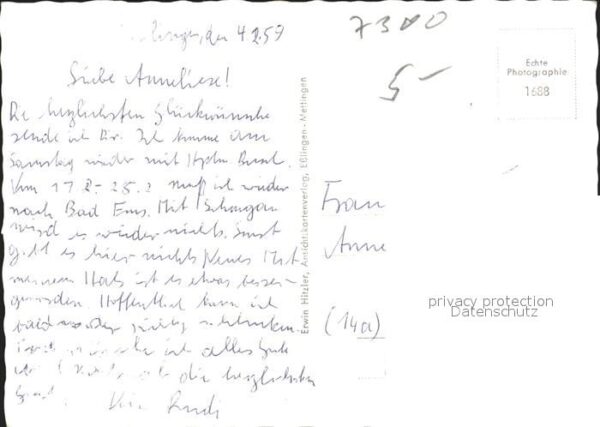 den 4.2.59
7300
5-
Liebe Anneliese!
Echte
Photographie
1688
Die herzlichsten Glückwünsche
sende ich Dir. Ich komme am
Samstag wieder mit
Vom 17.2-25.2 muß ich wieder
nach Bad Ems. Mit
wird es wieder nichts. Sonst
gibt es hier nichts Neues. Mit
meinem Hals ist es etwas besser
geworden. Hoffentlich kann ich
bald wieder richtig schlucken.
ich alles Gute
die herzlichsten
Rudi
Erwin Hitzler, Ansichtkartenverlag, Eßlingen-Mettingen
Frau
Anne
(14a)
privacy protection
Datenschutz